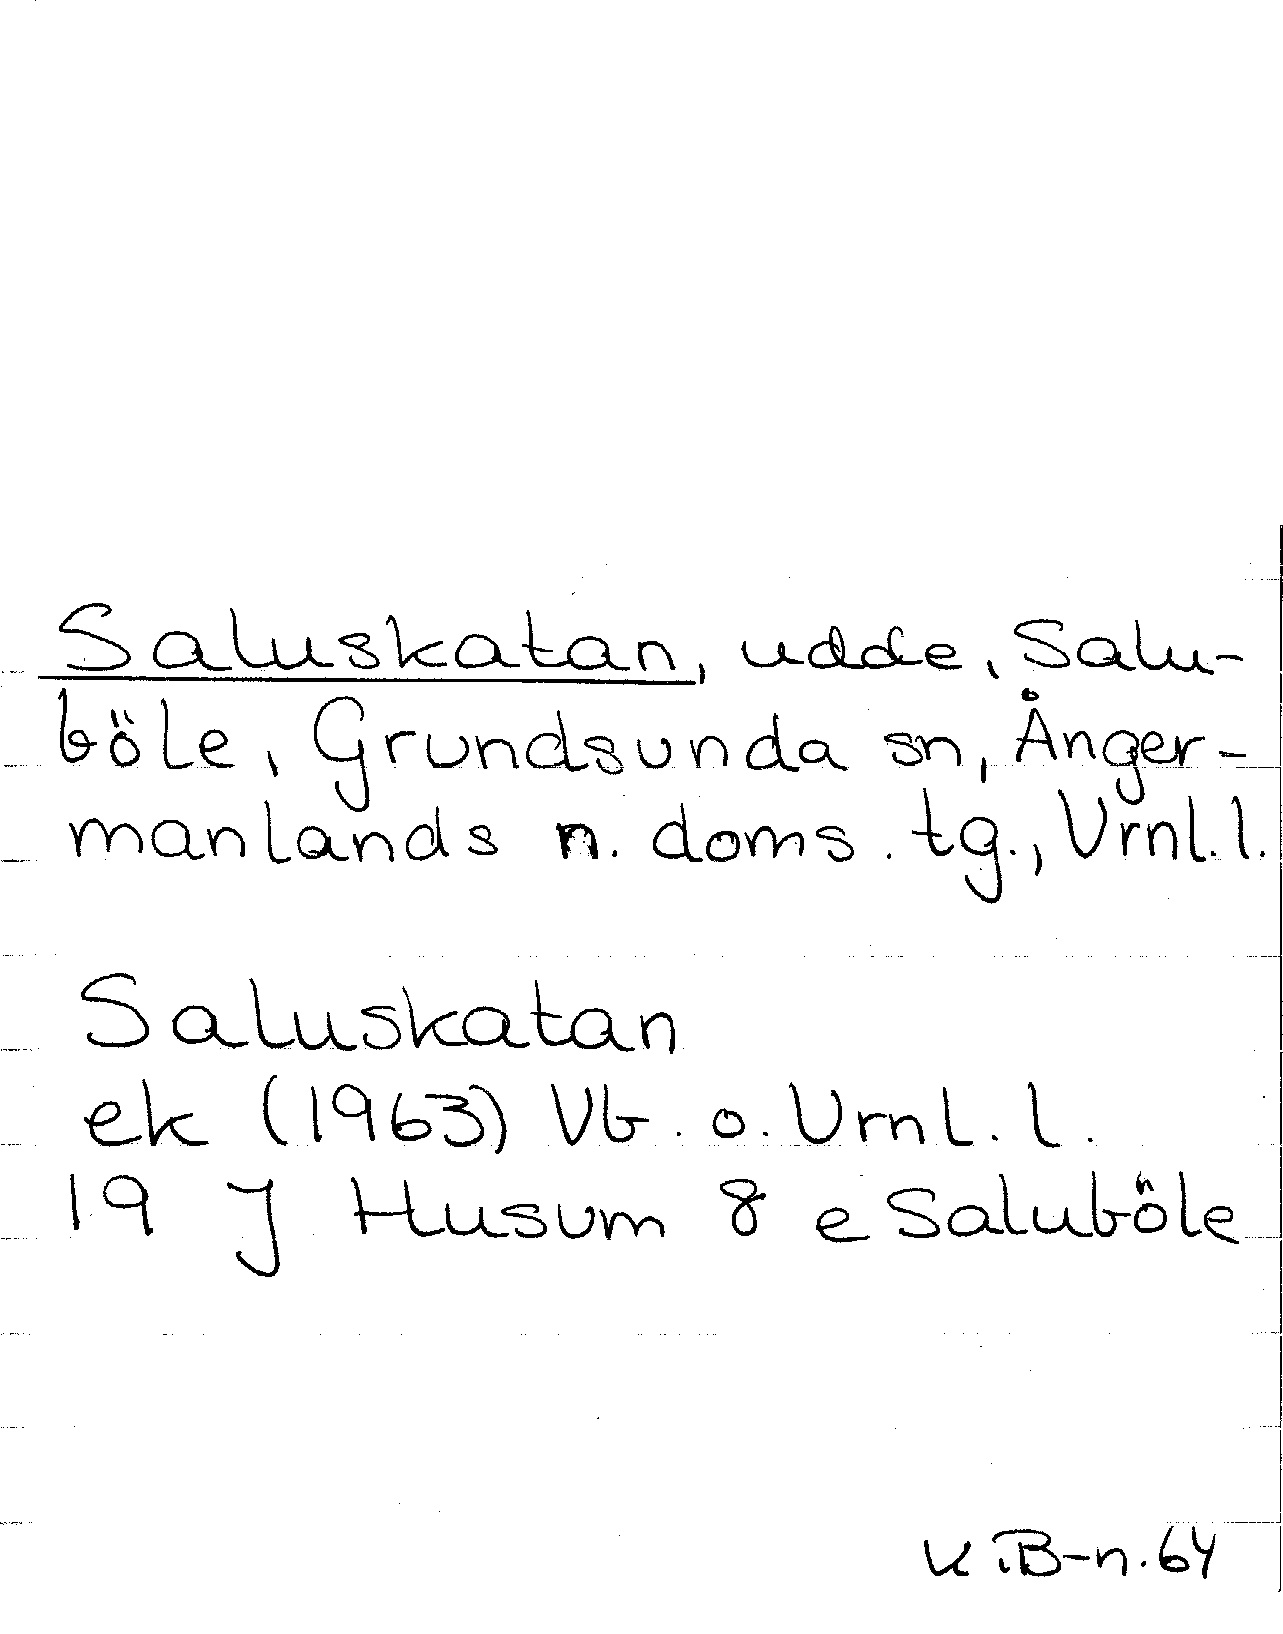 Saluskatan, udde, Salu-
böle, Grundsunda sn, Ånger-
manlands n. doms. tg., Vrnl. l.
Saluskatan
ek (1963) Vb. o. Vrnl. l.
19 J Husum 8 e Saluböle
K.B-n. 64